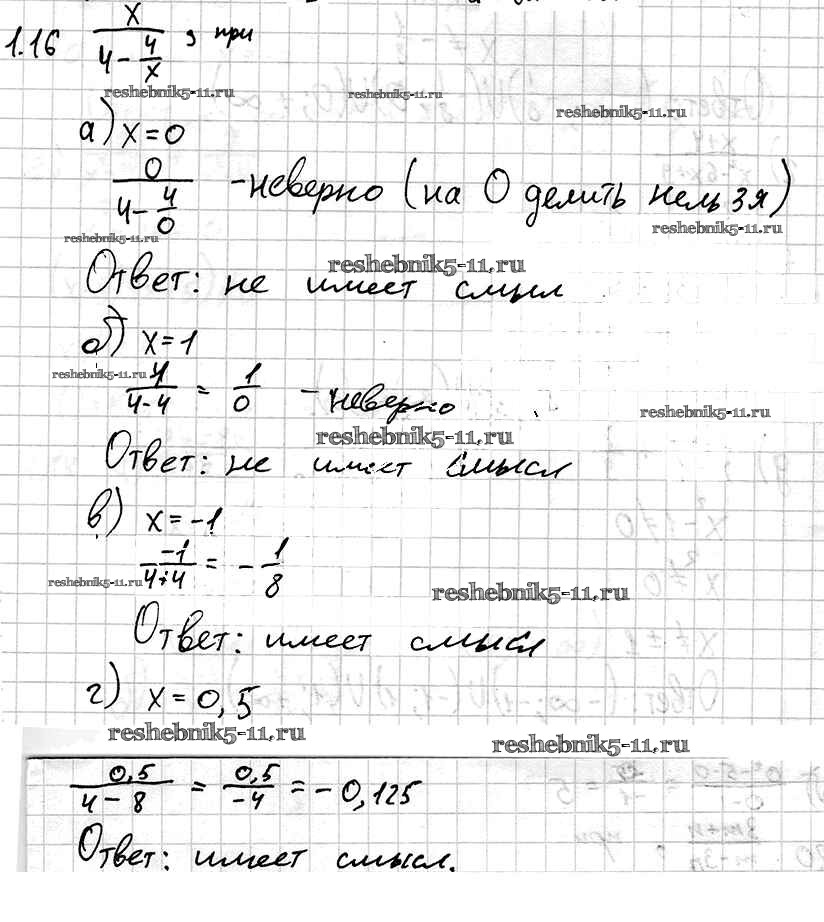 1.16 x/(4 - 4/x), при
reshebnik5-11.ru reshebnik5-11.ru
reshebnik5-11.ru
а) x = 0
0/(4 - 4/0) - неверно (на 0 делить нельзя)
reshebnik5-11.ru reshebnik5-11.ru
reshebnik5-11.ru
Ответ: не имеет смыл
б) x = 1
reshebnik5-11.ru
1/(4-4) = 1/0 - неверно
reshebnik5-11.ru
reshebnik5-11.ru
Ответ: не имеет смысл
в) x = -1
-1/(4+4) = - 1/8
reshebnik5-11.ru reshebnik5-11.ru
Ответ: имеет смысл
г) x = 0,5
reshebnik5-11.ru reshebnik5-11.ru
0,5/(4 - 8) = 0,5/-4 = - 0,125
Ответ: имеет смысл.